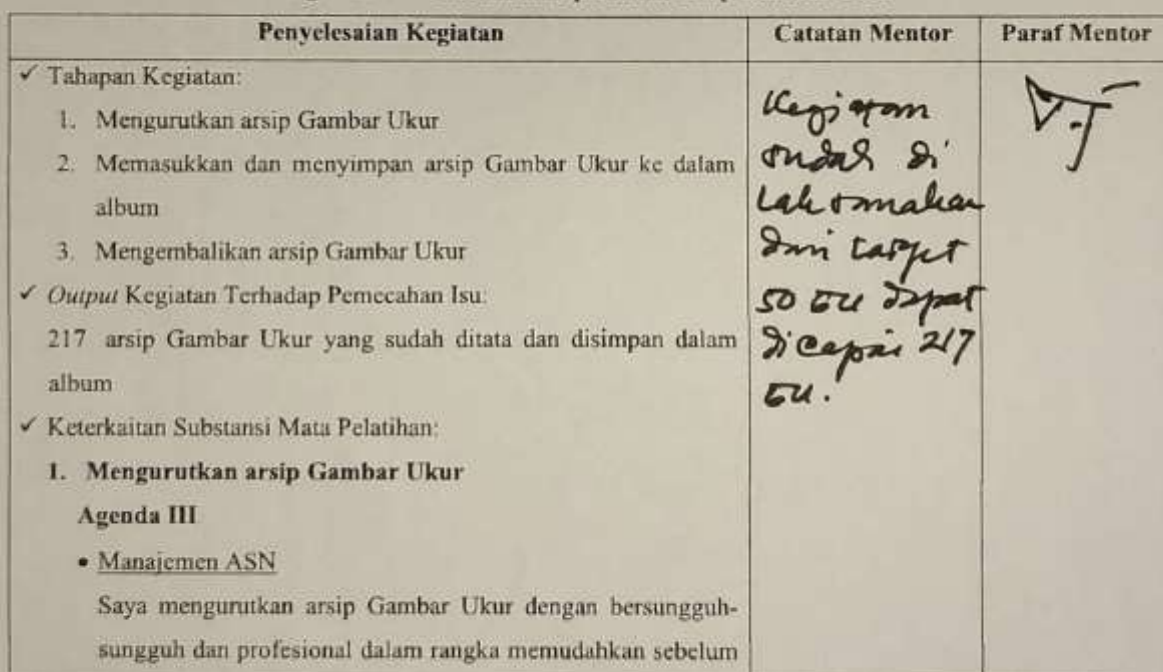 Penyelesaian Kegiatan
Catatan Mentor
Paraf Mentor
✓ Tahapan Kegiatan:
1. Mengurutkan arsip Gambar Ukur
2. Memasukkan dan menyimpan arsip Gambar Ukur ke dalam
album
3. Mengembalikan arsip Gambar Ukur
✓ Output Kegiatan Terhadap Pemecahan Isu:
217 arsip Gambar Ukur yang sudah ditata dan disimpan dalam
album
✓ Keterkaitan Substansi Mata Pelatihan:
1. Mengurutkan arsip Gambar Ukur
Agenda III
• Manajemen ASN
Saya mengurutkan arsip Gambar Ukur dengan bersungguh-
sungguh dan profesional dalam rangka memudahkan sebelum
Kegiatan
sudah di
laksanakan
dari target
50 GU dapat
dicapai 217
GU.